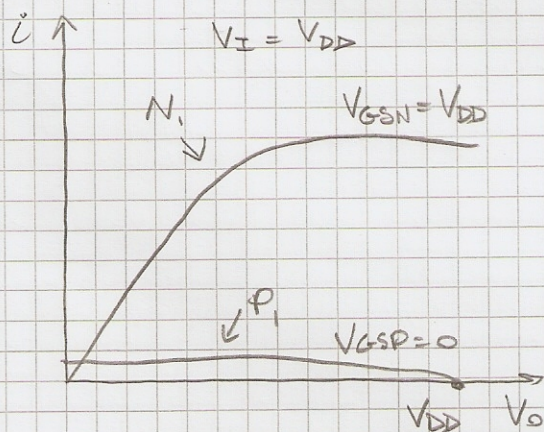 i
V_I = V_DD
N₁
V_GSN = V_DD
P₁
V_GSP = 0
V_DD
V_O